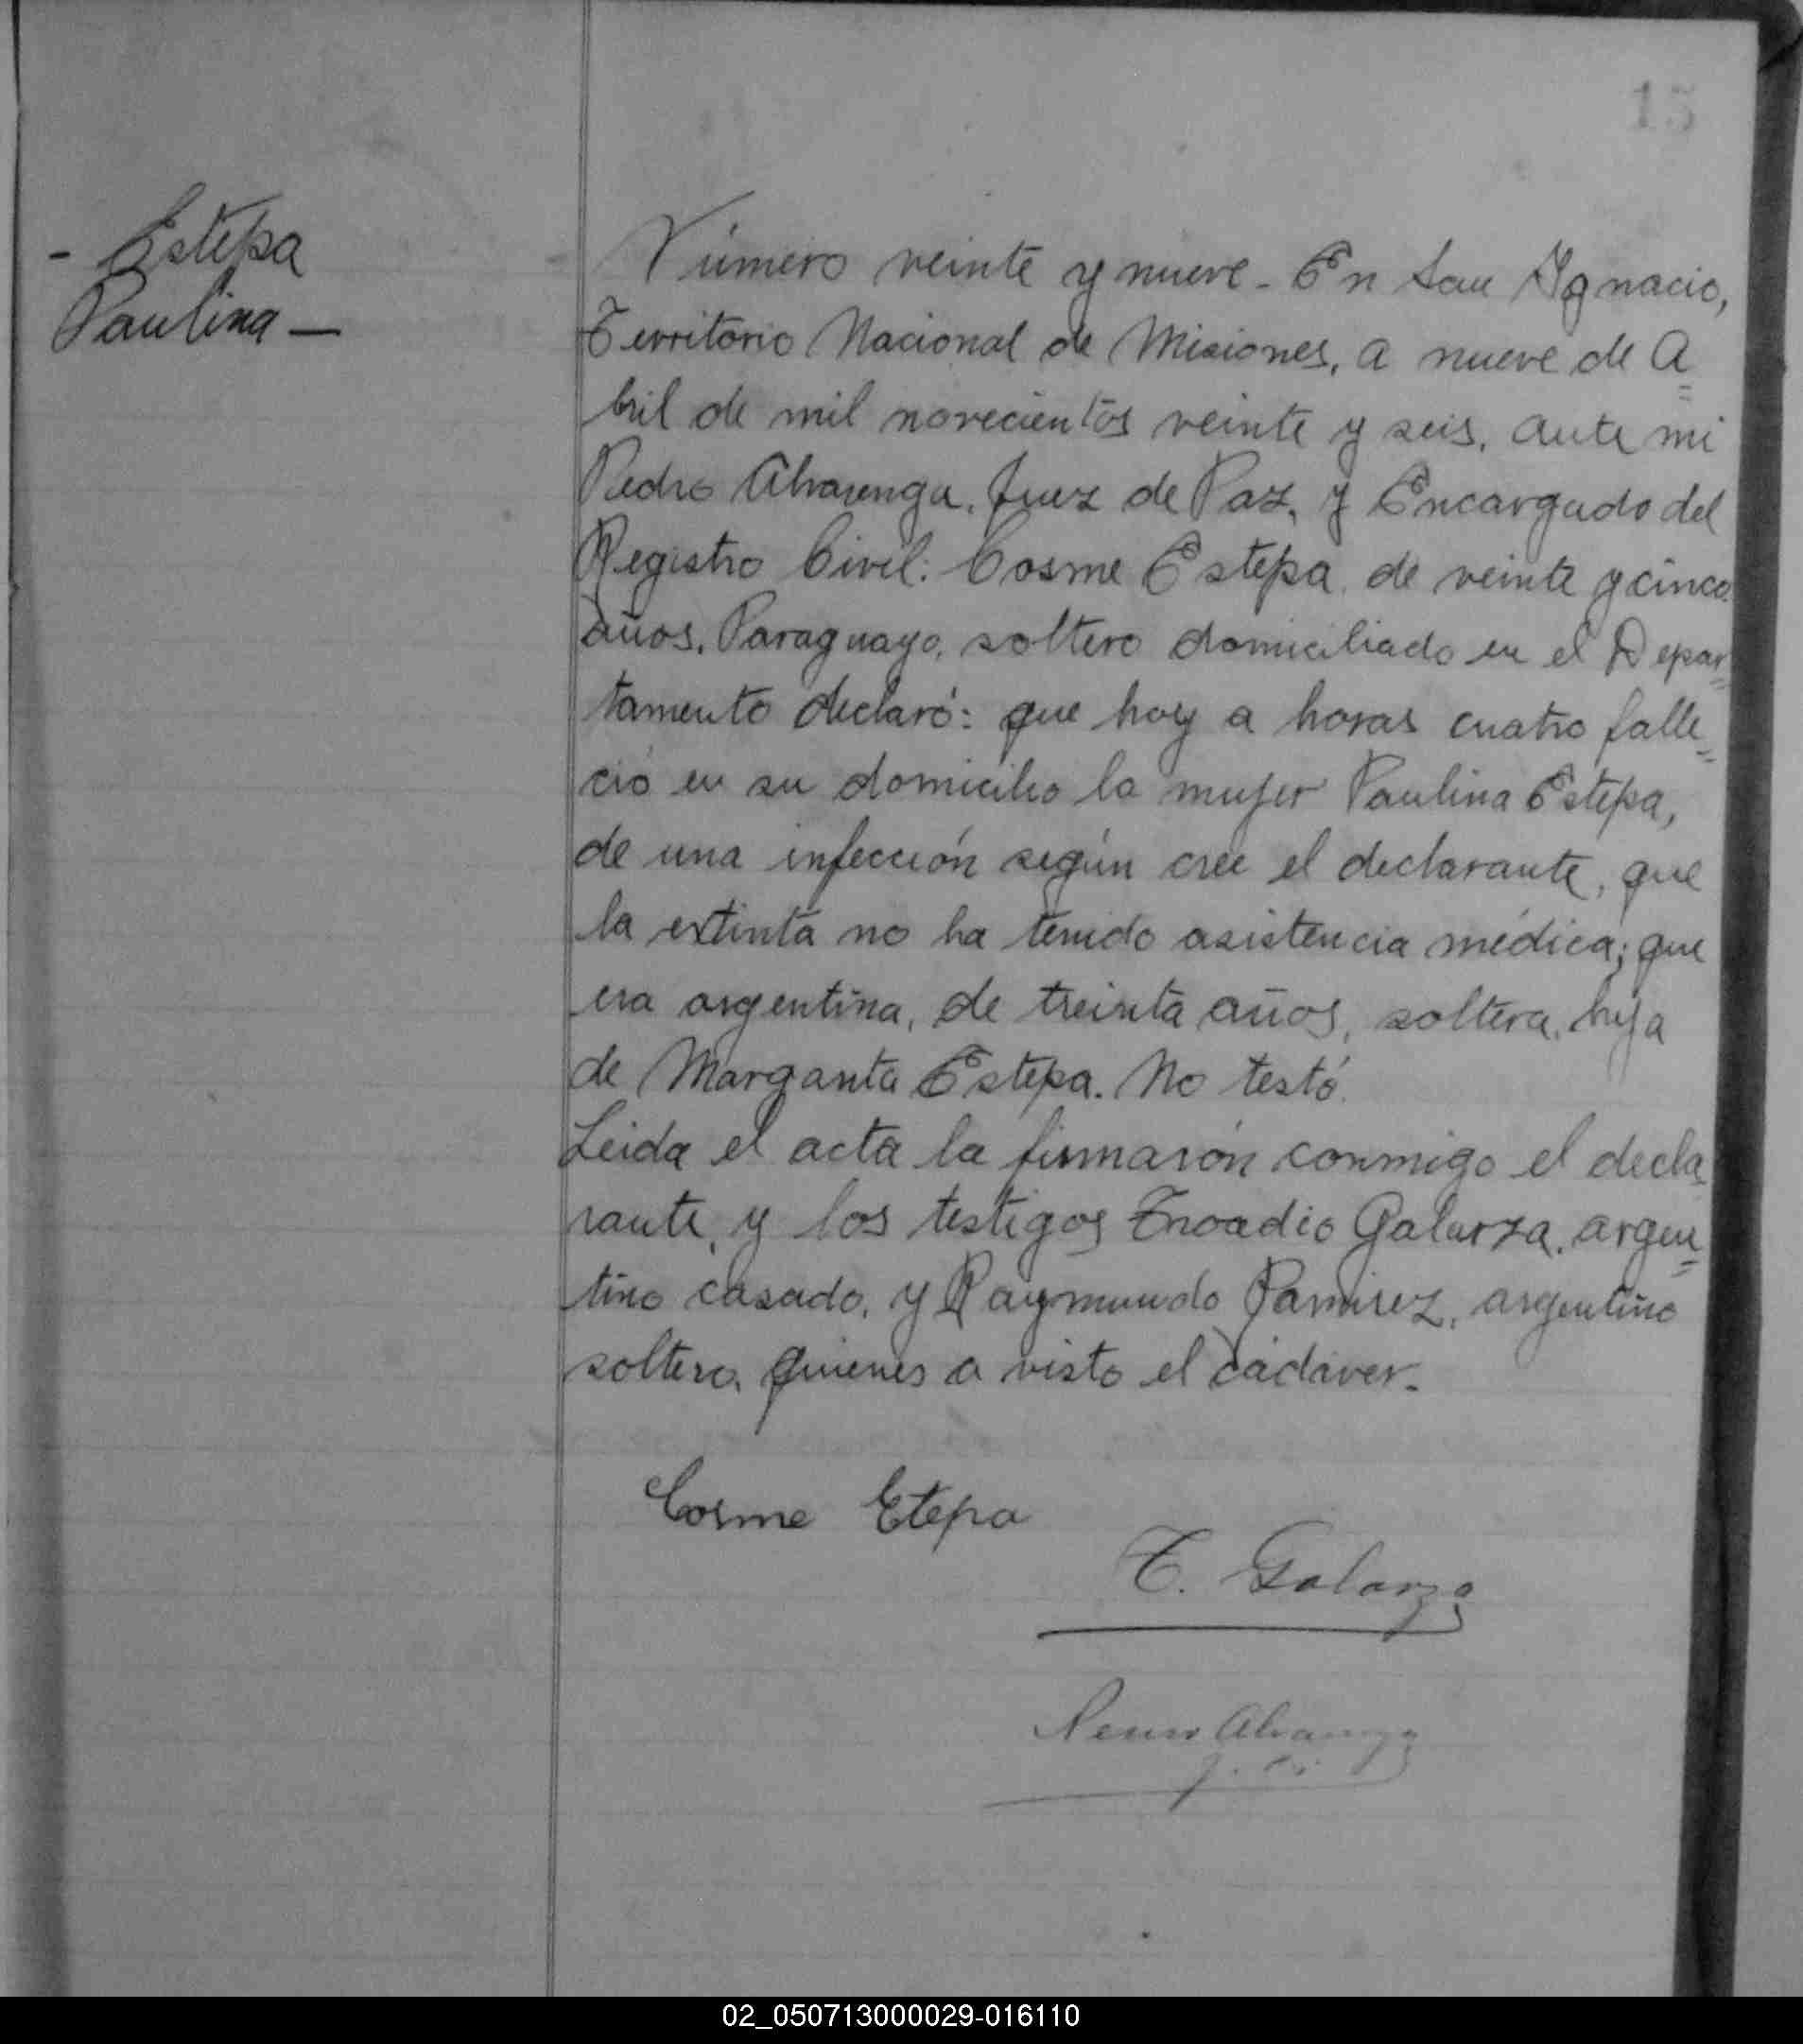 15
- Estepa
Paulina —
Número veinte y nueve - En San Ygnacio,
Territorio Nacional de Misiones, a nueve de A=
bril de mil novecientos veinte y seis, ante mi
Pedro Alvarenga, Juez de Paz, y Encargado del
Registro Civil: Cosme Estepa, de veinte y cinco
años, Paraguayo, soltero domiciliado en el Depar=
tamento declaró: que hoy a horas cuatro falle=
ció en su domicilio la mujer Paulina Estepa,
de una infección según cree el declarante, que
la extinta no ha tenido asistencia médica; que
era argentina, de treinta años, soltera, hija
de Margarita Estepa. No testó.
Leida el acta la firmarón conmigo el decla=
rante, y los testigos Troadio Galarza, argen=
tino casado, y Raymundo Ramirez, argentino
soltero, quienes a visto el cádaver.
Cosme Etepa
T. Galarza
Alvarenga
02_050713000029-016110